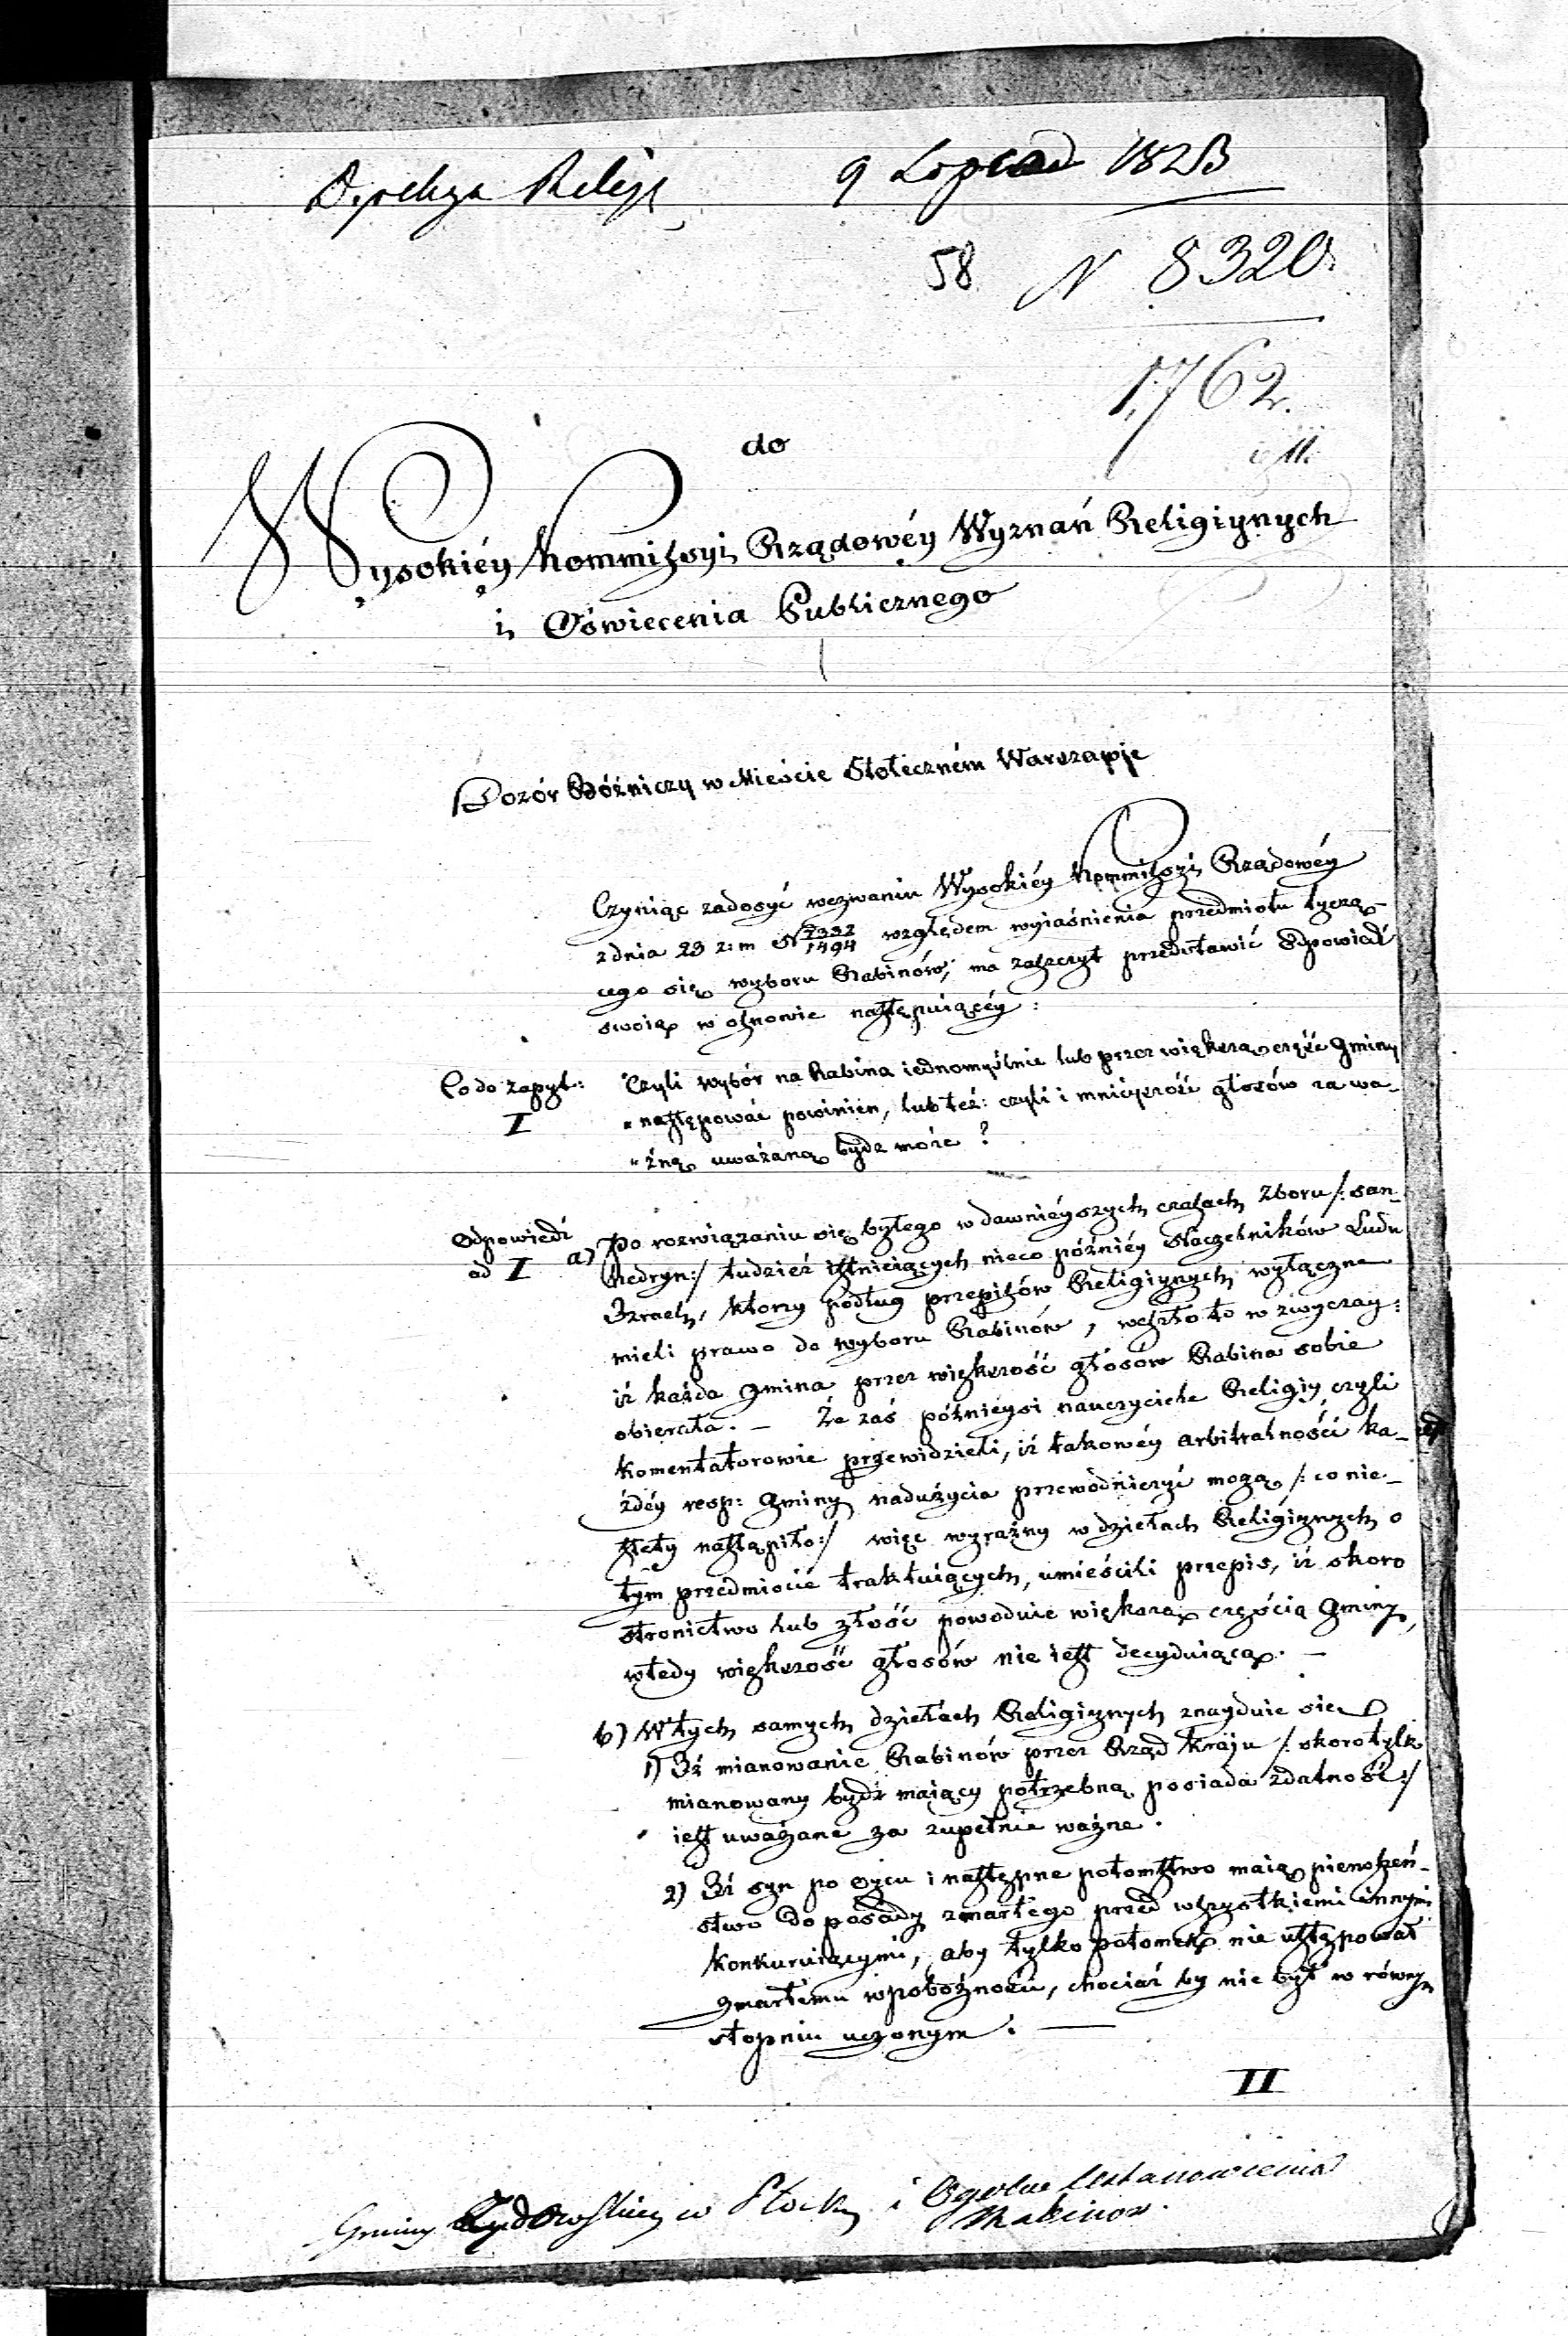 Dyrekcya Religii 9 Listopad 1823
58 N 8320.
1762.
do
Wysokiéy Kommissyi Rządowéy Wyznań Religiynych
i Oświecenia Publicznego
Dozór Bóżniczy w Mieście Stołeczném Warszawie
Czyniąc zadosyć wezwaniu Wysokiéy Kommissyi Rządowéy
z dnia 23 z: m N 7332/1494 względem wyiaśnienia przedmiotu tyczą-
cego się wyboru Rabinów, ma zaszczyt przedstawić Odpowiedź
swoią w osnowie następuiącéy:
Co do zapyt: "Czyli wybór na Rabina iednomyślnie lub przez większą część Gminy
I "następować powinien, lub też: czyli i mnieyszość głosów za wa-
"żną uważaną bydz może?
Odpowiedź a) Po rozwiązaniu się byłego w dawnieyszych czasach Zboru /: San-
ad I hedryn:/ tudzież istnieiących nieco późniéy Naczelników Ludu
Izraels, którzy podług przepisów Religiynych wyłączne
mieli prawo do wyboru Rabinów, weszło to w zwyczay:
iż każda Gmina przez większość głosów Rabina sobie
obierała. — Że zaś późnieysi nauczyciele Religiy czyli
Komentatorowie przewidzieli, iż takowéy arbitralności ka-
żdéy resp: Gminy nadużycia przewodniczyć mogą /: co nie-
stety nastąpiło:/ więc wyraźny w dziełach Religiynych o
tym przedmiocie traktuiących, umieścili przepis, iż skoro
stronictwo lub złość powoduie większą częścią Gminy,
wtedy większość głosów nie iest decyduiącą. —
b) W tych samych dziełach Religiynych znayduie się
1) Iż mianowanie Rabinów przez Rząd Kraju /: skoro tylk
mianowany bydź maiący potrzebną posiada zdatność:/
iest uważane za zupełnie ważne.
2) Iż syn po Oycu i następne potomstwo maią pierwszeń-
stwo do posady zmarłego przed wszystkiemi innymi
konkuruiącymi, aby tylko potomek nie ustępował
zmarłemu w pobożności, chociaż by nie był w równym
stopniu uczonym. —
II
Gminy Żydowskiey w Płocku i Ogólne Ustanowienia
Rabinow.